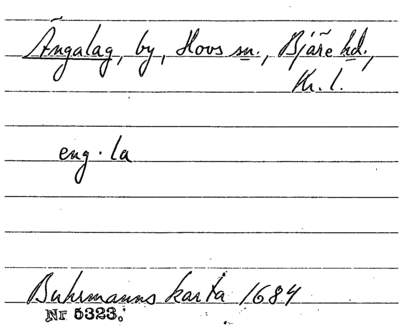 Ängalag, by, Hovs sn., Bjäre hd.,
Kr. l.
eng. la
Buhrmanns karta 1684
Nr 5323.